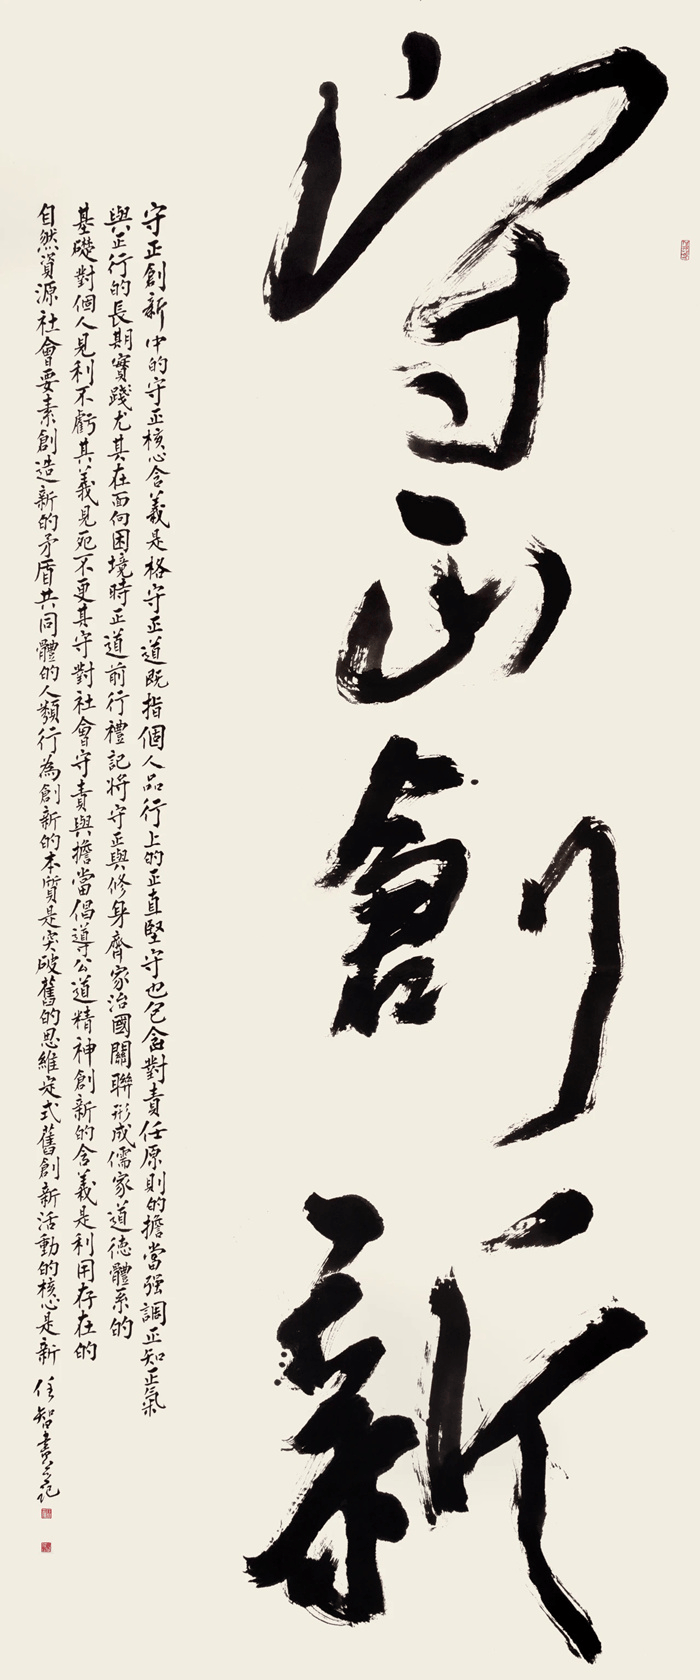 守正創新
守正創新中的守正核心含義是格守正道既指個人品行上的正直堅守也包含對責任原則的擔當强調正知正氣
與正行的長期實踐尤其在面向困境時正道前行禮記將守正與修身齊家治國關聯形成儒家道德體系的
基礎對個人見利不虧其義見死不更其守對社會守責與擔當倡導公道精神創新的含義是利用存在的
自然資源社會要素創造新的矛盾共同體的人類行為創新的本質是突破舊的思維定式舊創新活動的核心是新
任智書